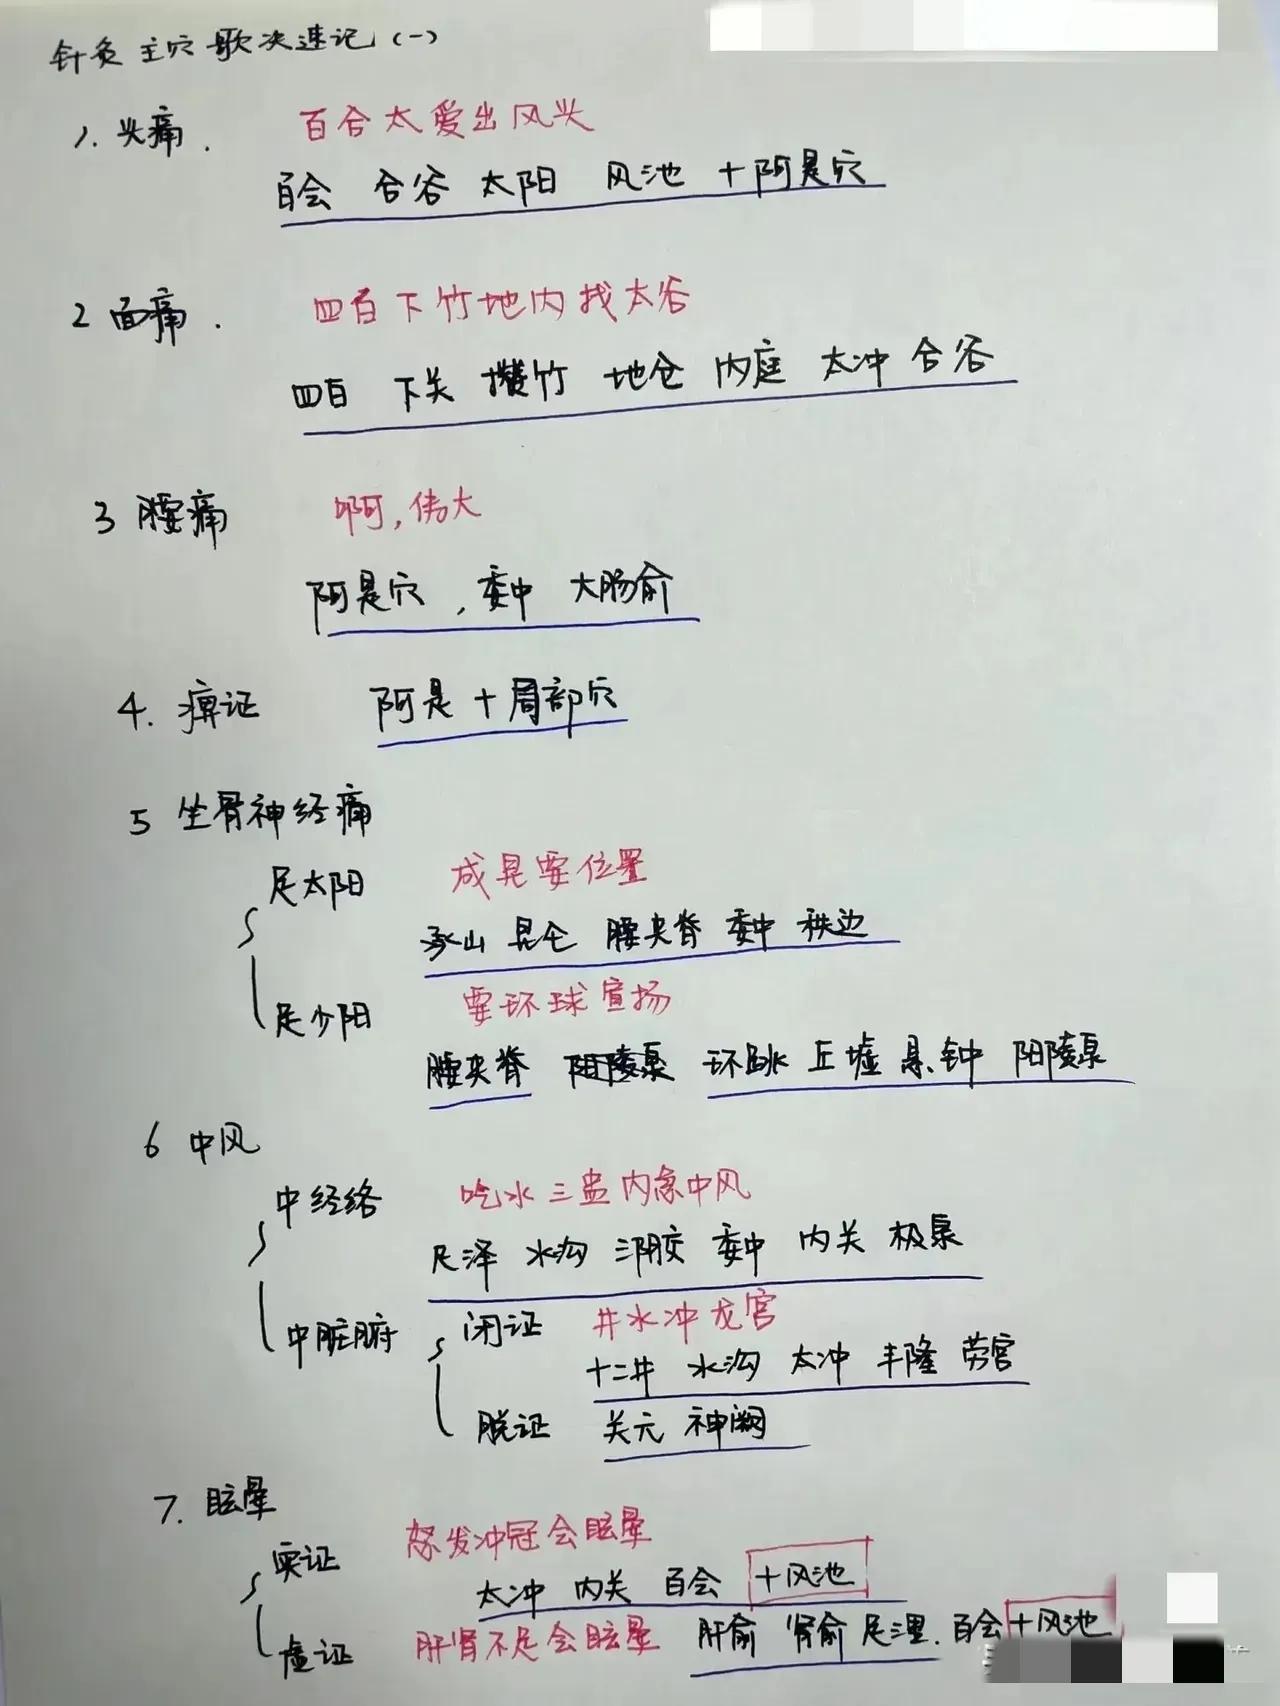 针灸 主穴 歌决速记(一)
1. 头痛. 百合太爱出风头
百会 合谷 太阳 风池 +阿是穴
2 面痛. 四百下竹地内找太谷
四白 下关 攒竹 地仓 内庭 太冲 合谷
3 腰痛 啊,伟大
阿是穴,委中 大肠俞
4. 痹证 阿是+局部穴
5 坐骨神经痛
足太阳 成昆要位置
承山 昆仑 腰夹脊 委中 秩边
足少阳 要环球宣扬
腰夹脊 阳陵泉 环跳 丘墟 悬钟 阳陵泉
6 中风
中经络 吃水三盅内急中风
尺泽 水沟 三阴交 委中 内关 极泉
中脏腑 闭证 井水冲龙宫
十二井 水沟 太冲 丰隆 劳宫
脱证 关元 神阙
7. 眩晕
实证 怒发冲冠会眩晕
太冲 内关 百会 +风池
虚证 肝肾不足会眩晕 肝俞 肾俞 足三里. 百会 +风池